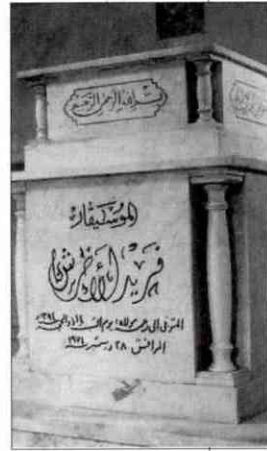 بسم الله الرحمن الرحيم
الموسيقار
فريد الأطرش
المتوفى إلى رحمة الله يوم
الموافق ديسمبر ١٩٧٤